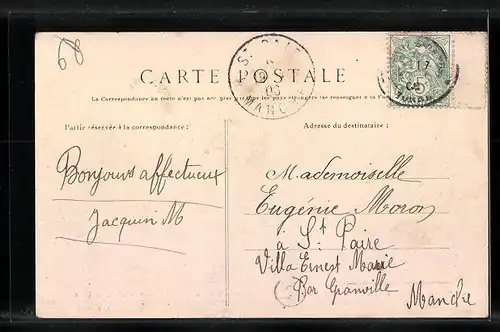 68
CARTE POSTALE
La Correspondance au recto n'est pas acceptée par tous les pays étrangers (se renseigner à la
Partie réservée à la correspondance :
Adresse du destinataire :
Bonjours affectueux
Jacquin M
Mademoiselle
Eugénie Moron
à St Paire
Villa Ernest Marie
Par Granville
Manche